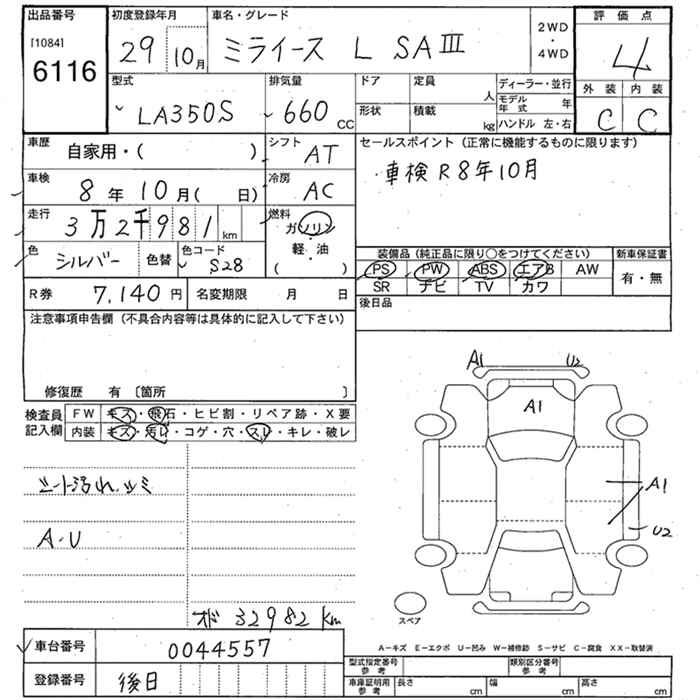 出品番号
[1084]
6116
初度登録年月
29 10月
車名・グレード
ミライース L SAⅢ
2WD
・
4WD
評価点
4
外装 内装
C C
型式
LA350S
排気量
660 CC
ドア 定員 人
形状 積載 kg
ディーラー・並行
モデル年式 年
ハンドル 左・右
車歴 自家用・( )
シフト AT
車検 8年10月( 日)
冷房 AC
走行 3万2千981 km
燃料
ガソリン
軽・油
( )
色 シルバー 色替
色コード S28
R券 7,140円 名変期限 月 日
セールスポイント(正常に機能するものに限ります)
車検R8年10月
装備品(純正品に限り○をつけてください)
PS PW ABS エアB AW
SR ナビ TV カワ
新車保証書
有・無
後日品
注意事項申告欄(不具合内容等は具体的に記入して下さい)
修復歴 有 〔箇所 〕
検査員記入欄
FW キズ・飛石・ヒビ割・リペア跡・X要
内装 キズ・汚レ・コゲ・穴・スレ・キレ・破レ
シート汚れ、シミ
A・U
オド 32982 km
A1 U2
A1
A1
U2
スペア
A-キズ E-エクボ U-凹み W-補修跡 S-サビ C-腐食 XX-取替済
車台番号 0044557
登録番号 後日
型式指定番号 参考
類別区分番号 参考
車庫証明用 参考
長さ cm 幅 cm 高さ cm